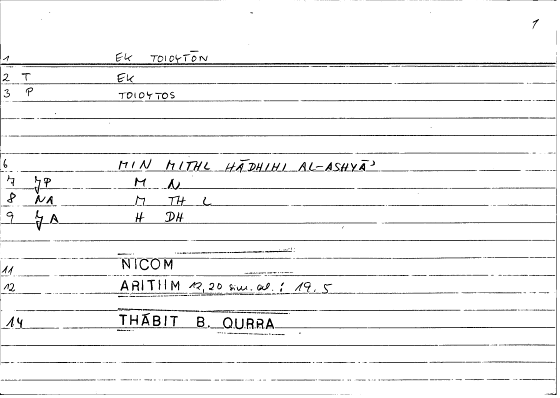 1
1 EK TOIOYTŌN
2 T EK
3 P TOIOYTOS
6 MIN MITHL HĀDHIHI AL-ASHYĀʾ
7 M N
8 NA M TH L
9 H DH
11 NICOM
12 ARITHM 12,20 sim. al. : 19.5
14 THĀBIT B. QURRA